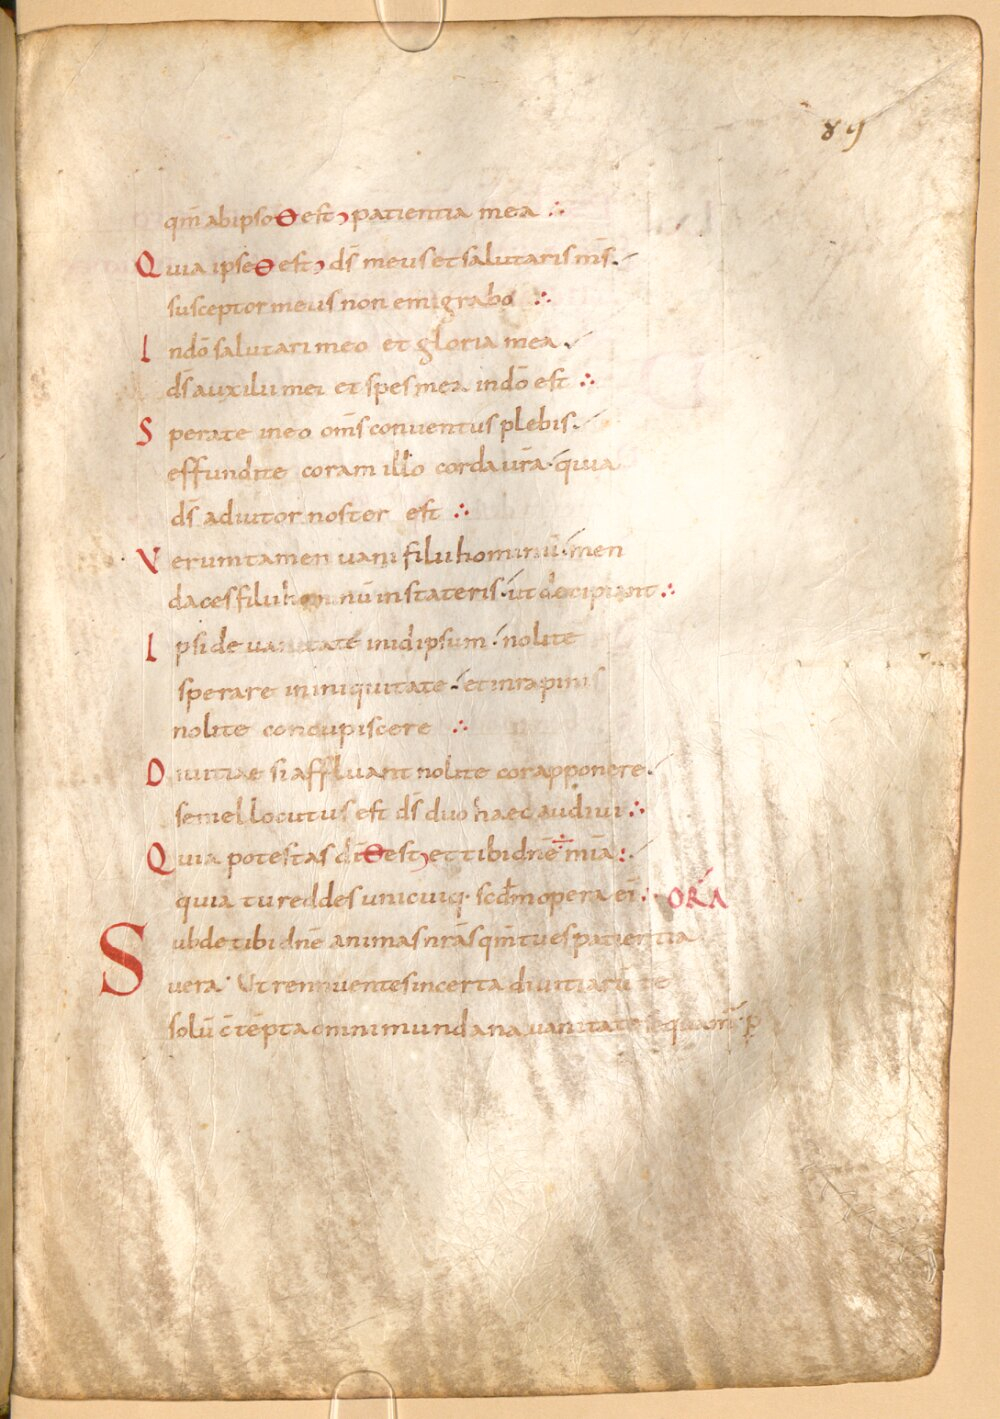 89
qm̄ ab ipso ÷ est patientia mea ჻
Quia ipse ÷ est ds̄ meus et salutaris ms̄
susceptor meus non emigrabo ჻
In dō salutari meo et gloria mea
ds̄ auxilii mei et spes mea in dō est ჻
Sperate in eo om̄s conuentus plebis
effundite coram illo corda ur̄a quia
ds̄ adiutor noster est ჻
Verumtamen uani filii hominū men
daces filii hominū in stateris ut decipiant ჻
Ipsi de uanitate in idipsum nolite
sperare in iniquitate et in rapinis
nolite concupiscere ჻
Diuitiae si affluant nolite cor apponere
semel locutus est ds̄ duo haec audiui ჻
Quia potestas dī ÷ est et tibi dn̄e ÷ mīa :
quia tu reddes unicuiq· scd̄m opera eī : ORA
Subde tibi dn̄e animas nr̄as qm̄ tu es patientia
uera · Ut rennuentes incerta diuitiarū te
solū c̄tēpta omni mundana uanitate sequamur p̄